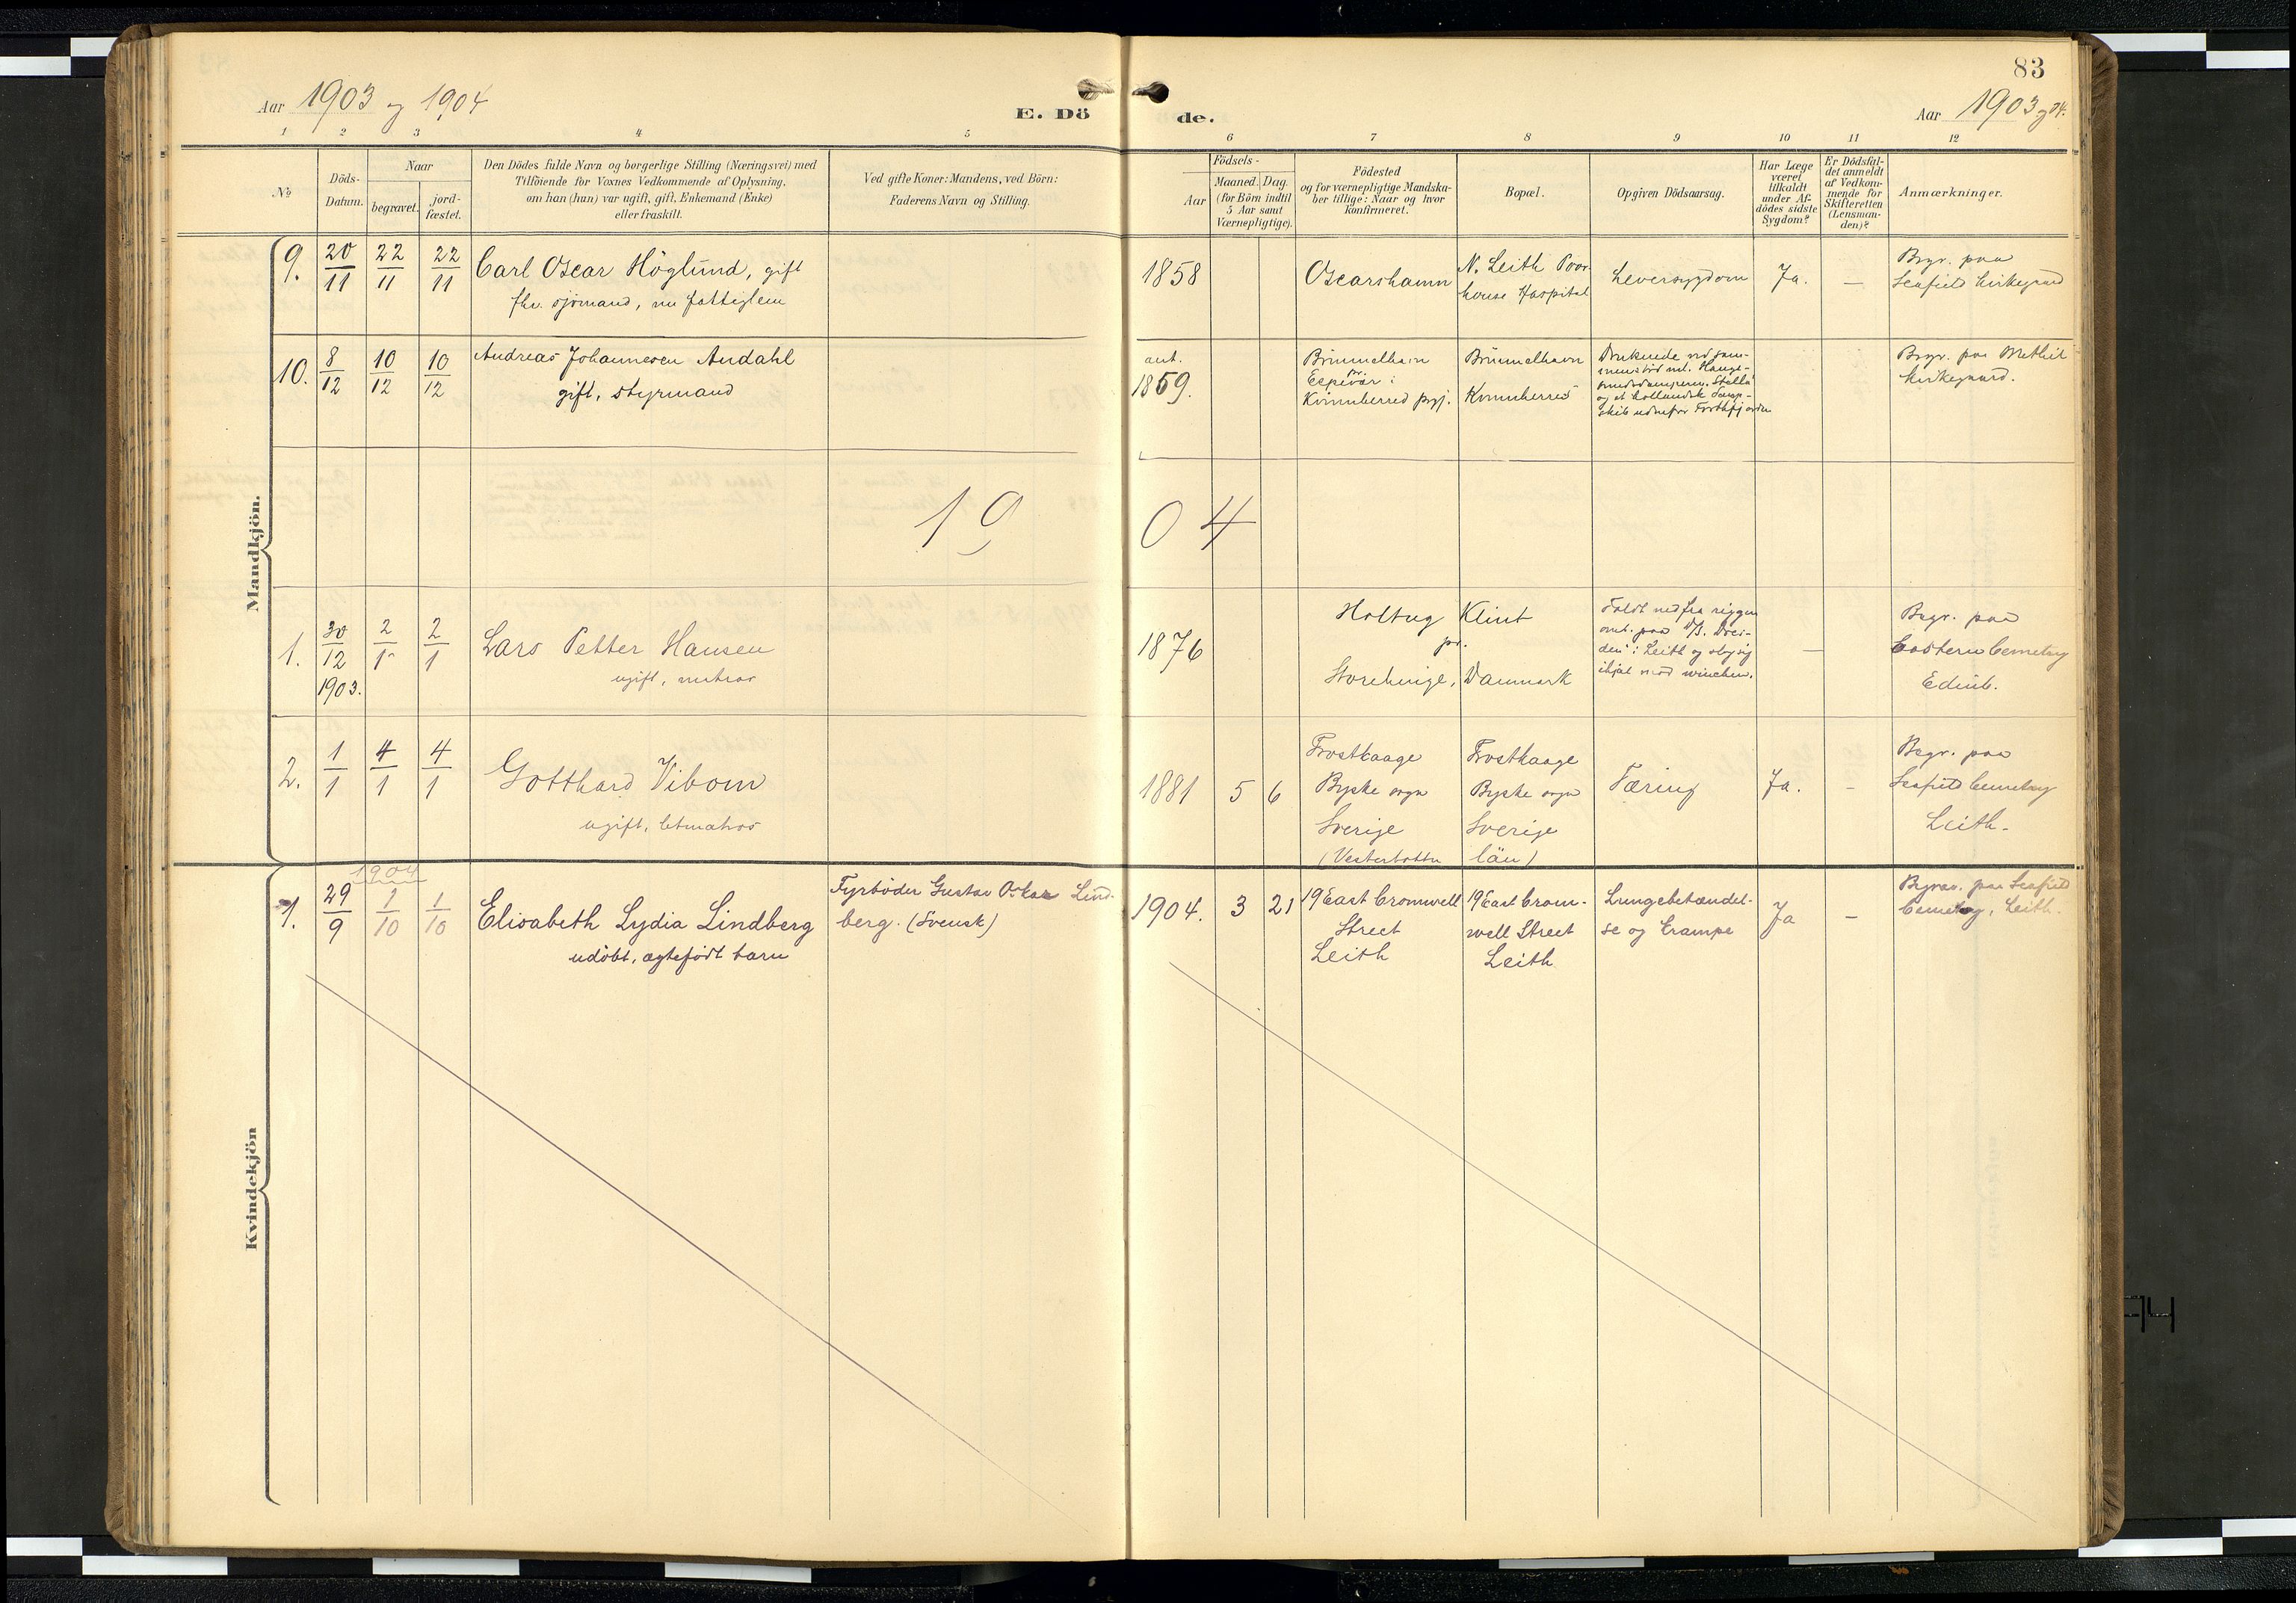 83
Aar 1903 og 1904
E. Dö
de.
Aar 1903 og 04.
1 2 3 4 5 6 7 8 9 10 11 12
No
Döds-
Datum.
Naar
begravet.
jord-
fæstet.
Den Dödes fulde Navn og borgerlige Stilling (Næringsvei) med
Tilföiende for Voxnes Vedkommende af Oplysning,
om han (hun) var ugift, gift, Enkemand (Enke)
eller fraskilt.
Ved gifte Koner: Mandens, ved Börn:
Faderens Navn og Stilling.
Födsels-
Aar
Maaned. Dag.
(for Börn indtil
5 Aar samt
Værnepligtige).
Födested
og for værnepligtige Mandska-
ber tillige: Naar og hvor
konfirmeret.
Bopæl.
Opgiven Dödsaarsag.
Har Læge
været
tilkaldt
under Af-
dödes sidste
Sygdom?
Er Dödsfal-
det anmeldt
af Vedkom-
mende for
Skifteretten
(Lensman-
den)?
Anmærkninger.
Mandkjön.
9.
20/11
22/11
22/11
Carl Oscar Höglund, gift
fhv. sjömand, nu fattiglem
1858
Oscarshamn
N. Leith Poor
house Hospital
Leversygdom
Ja.
—
Begr. paa
Seafield Kirkegaard
10.
8/12
10/12
10/12
Andreas Johannesen Andahl
gift, styrmand
ant.
1859.
Kvinnherred prgj.
Kvinnherred
og et hollandsk
Begr. paa Methil
Kirkegaard.
19
04
1.
30/12
1903.
2/1
2/1
Lars Petter Hansen
ugift, matros
1876
Holtug Klint
pr.
Storehinge, Danmark
Faldt ned fra riggen
i Leith og slog sig
ihjæl mod winchen.
—
Begr. paa
Eastern Cemetry
Edinb.
2.
1/1
4/1
4/1
Gotthard Vibom
ugift, letmatros
1881
5
6
Frostkaage
Byske sogn
Sverige
(Vesterbottn
Frostkaage
Byske sogn
Sverige
län)
Tæring
Ja.
–
Begr. paa
Seafield Cemetry
Leith.
Kvindekjön
1904
1.
29/9
1/10
1/10
Elisabeth Lydia Lindberg
udöbt, ægtefödt barn
Fyrböder Gustav Oskar Lind-
berg. (Svensk)
1904.
3
21
19 East Cromwell
Street
Leith
19 East Crom-
well Street
Leith
Lungebetændel-
se og Crampe
Ja
–
Begrav. paa Seafield
Cemetry, Leith.